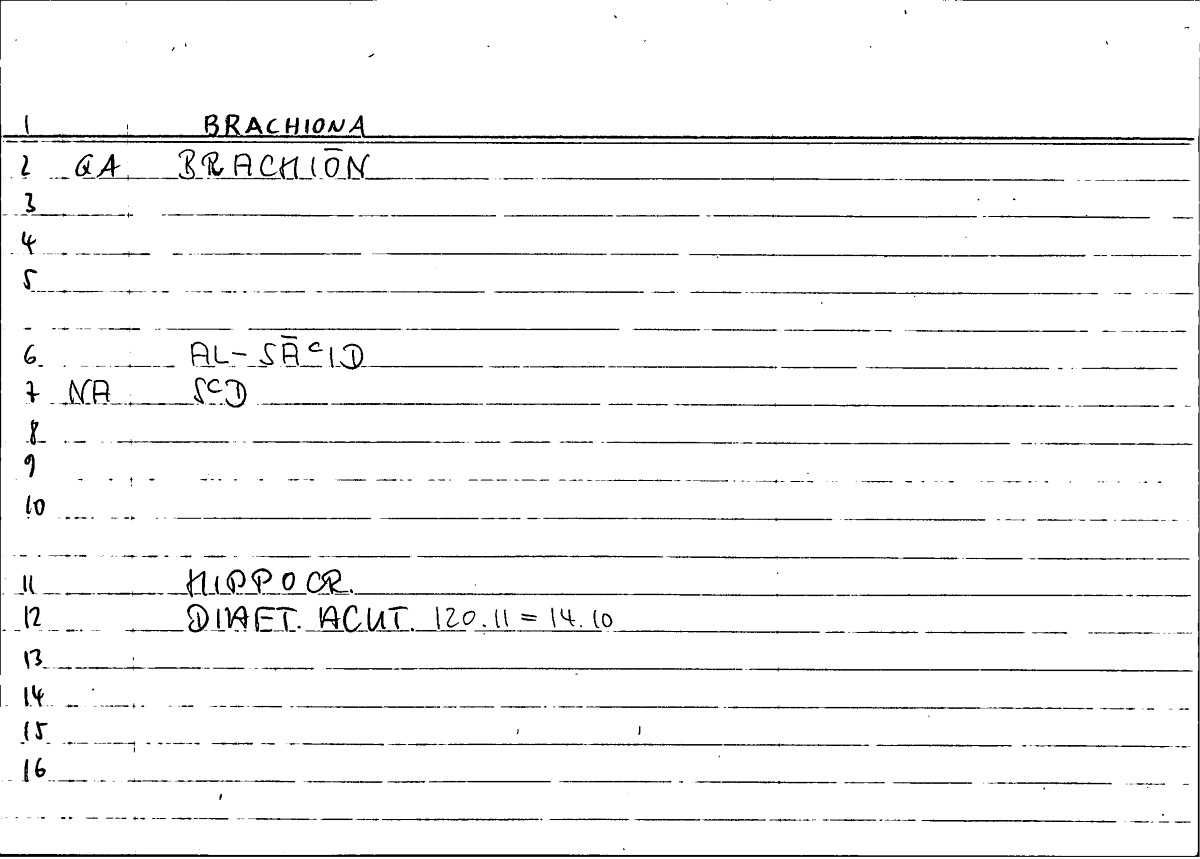 1 BRACHIONA
2 QA BRACHIŌN
3
4
5
6 AL-SĀᶜID
7 NA SᶜD
8
9
10
11 HIPPOCR.
12 DIAET. ACUT. 120.11 = 14.10
13
14
15
16